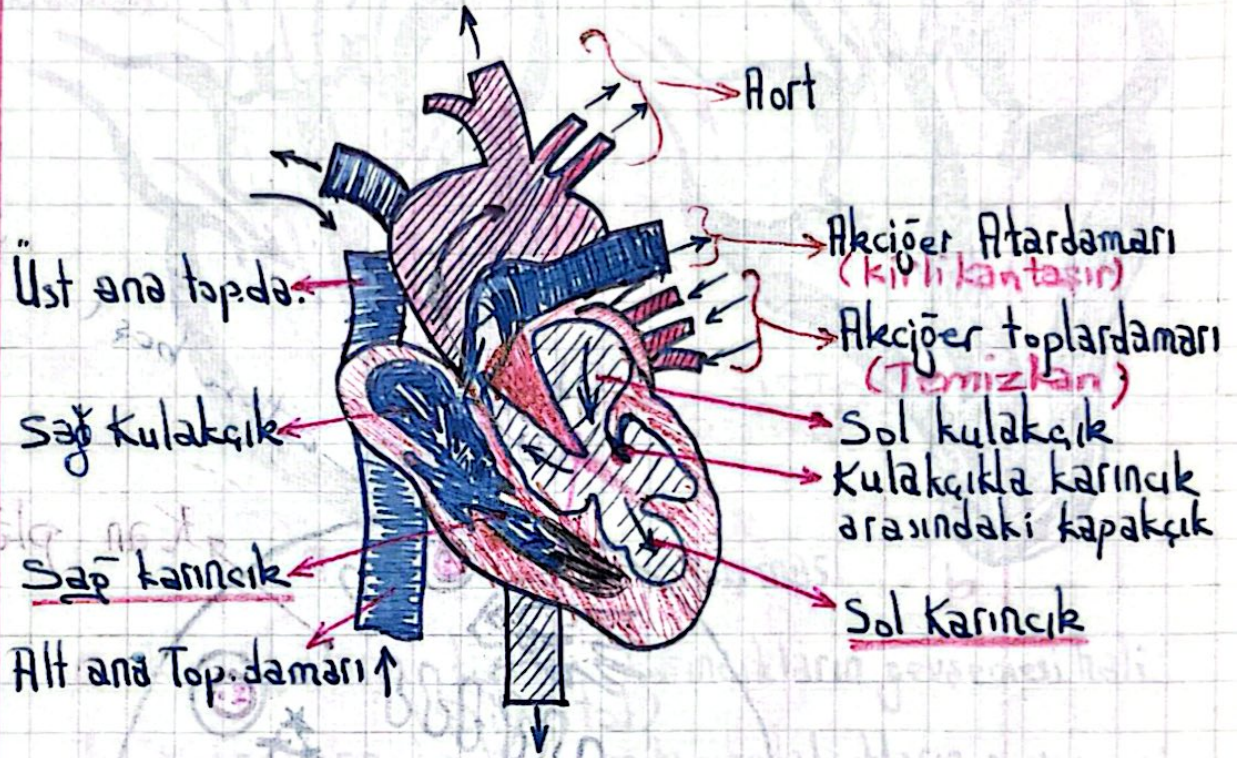 Aort
Üst ana top.da.
Akciğer Atardamarı
(kirli kan taşır)
Akciğer toplardamarı
(Temizkan)
Sağ Kulakçık
Sol kulakçık
Kulakçıkla karıncık
arasındaki kapakçık
Sağ karıncık
Sol Karıncık
Alt ana Top.damarı